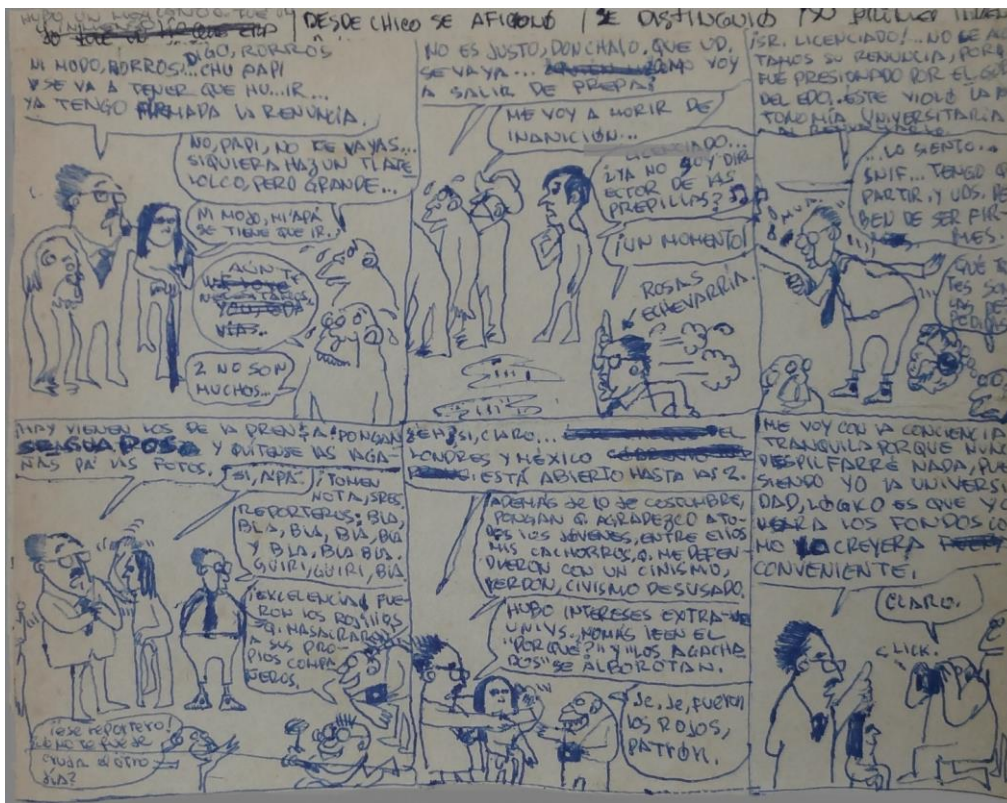 HUBO UN
DESDE CHICO SE AFICIONÓ
SE DISTINGUIÓ
SU PRIMER
DIGO, RORROS
NI MODO, RORROS!...CHU PAPI
SE VA A TENER QUE HU...IR...
YA TENGO FIRMADA LA RENUNCIA.
NO, PAPI, NO TE VAYAS...
SIQUIERA HAZ UN TLATE
LOLCO, PERO GRANDE...
NI MODO, MI'APÁ
SE TIENE QUE IR.
AÚN TE
2 NO SON
MUCHOS...
NO ES JUSTO, DON CHALO, QUE UD.
SE VAYA... CÓMO VOY
A SALIR DE PREPA?
ME VOY A MORIR DE
INANICIÓN...
LICENCIADO...
¿YA NO SOY DIR
ECTOR DE LAS
PREPILLAS?
¡UN MOMENTO!
ROSAS
ECHEVARRÍA.
¡SR. LICENCIADO!...NO LE
TAMOS SU RENUNCIA,
FUÉ PRESIONADO POR EL
DEL EDO. ÉSTE VIOLÓ LA
TONOMÍA UNIVERSITARIA
...LO SIENTO...
SNIF... TENGO
PARTIR, Y UDS.
BEN DE SER FIR
MES.
QUÉ
¡HAY VIENEN LOS DE LA PRENSA! PONGAN
SE GUAPOS Y QUÍTENSE LAS LAGA-
ÑAS PA' LAS FOTOS.
SI, APÁ.
¡TOMEN
NOTA, SRES
REPORTEROS: BLA,
BLA, BLA, BLA, BLA
Y BLA, BLA BLA.
GUIRI, GUIRI, BLA
¡EXCELENCIA! FUE-
RON LOS ROJILLOS
Q. MASACRARON
A SUS PRO-
PIOS COMPA
ÑEROS.
¡ese reportero!
cruda el otro
día?
¿EH? SI, CLARO... EL
LONDRES Y MÉXICO
ESTÁ ABIERTO HASTA LAS 2.
ADEMÁS de lo de COSTUMBRE,
PONGAN Q. AGRADEZCO A TO-
DOS LOS JÓVENES, ENTRE ELLOS
MIS CACHORROS, Q. ME DEFEN-
DIERON CON UN CINISMO,
PERDÓN, CIVISMO DESUSADO.
HUBO INTERESES EXTRA-
UNIVS. NOMÁS LEEN EL
"POR QUÉ?" Y "LOS AGACHA
DOS" SE ALBOROTAN.
Je, Je, FUERON
LOS ROJOS,
PATRÓN.
ME VOY CON LA CONCIENCIA
TRANQUILA PORQUE NUN
DESPILFARRÉ NADA,
SIENDO YO LA UNIVERSI
DAD, LÓGICO ES QUE
LOS FONDOS CO
MO LO CREYERA
CONVENIENTE.
CLARO.
CLICK.